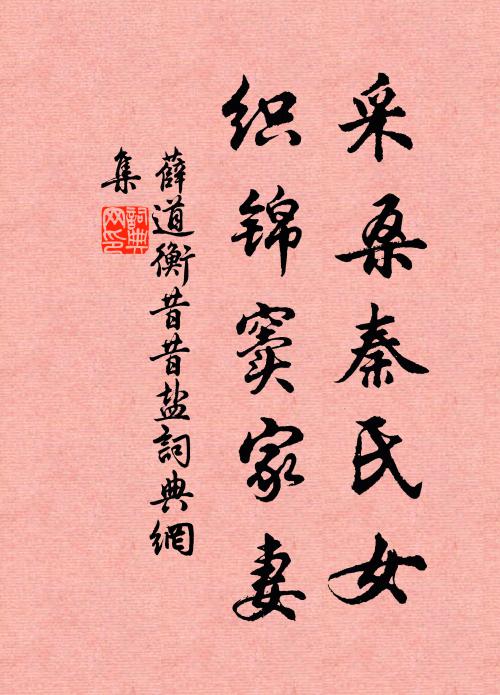 采桑秦氏女
织锦窦家妻
薛道衡昔昔盐詞典網
集
詞典网印